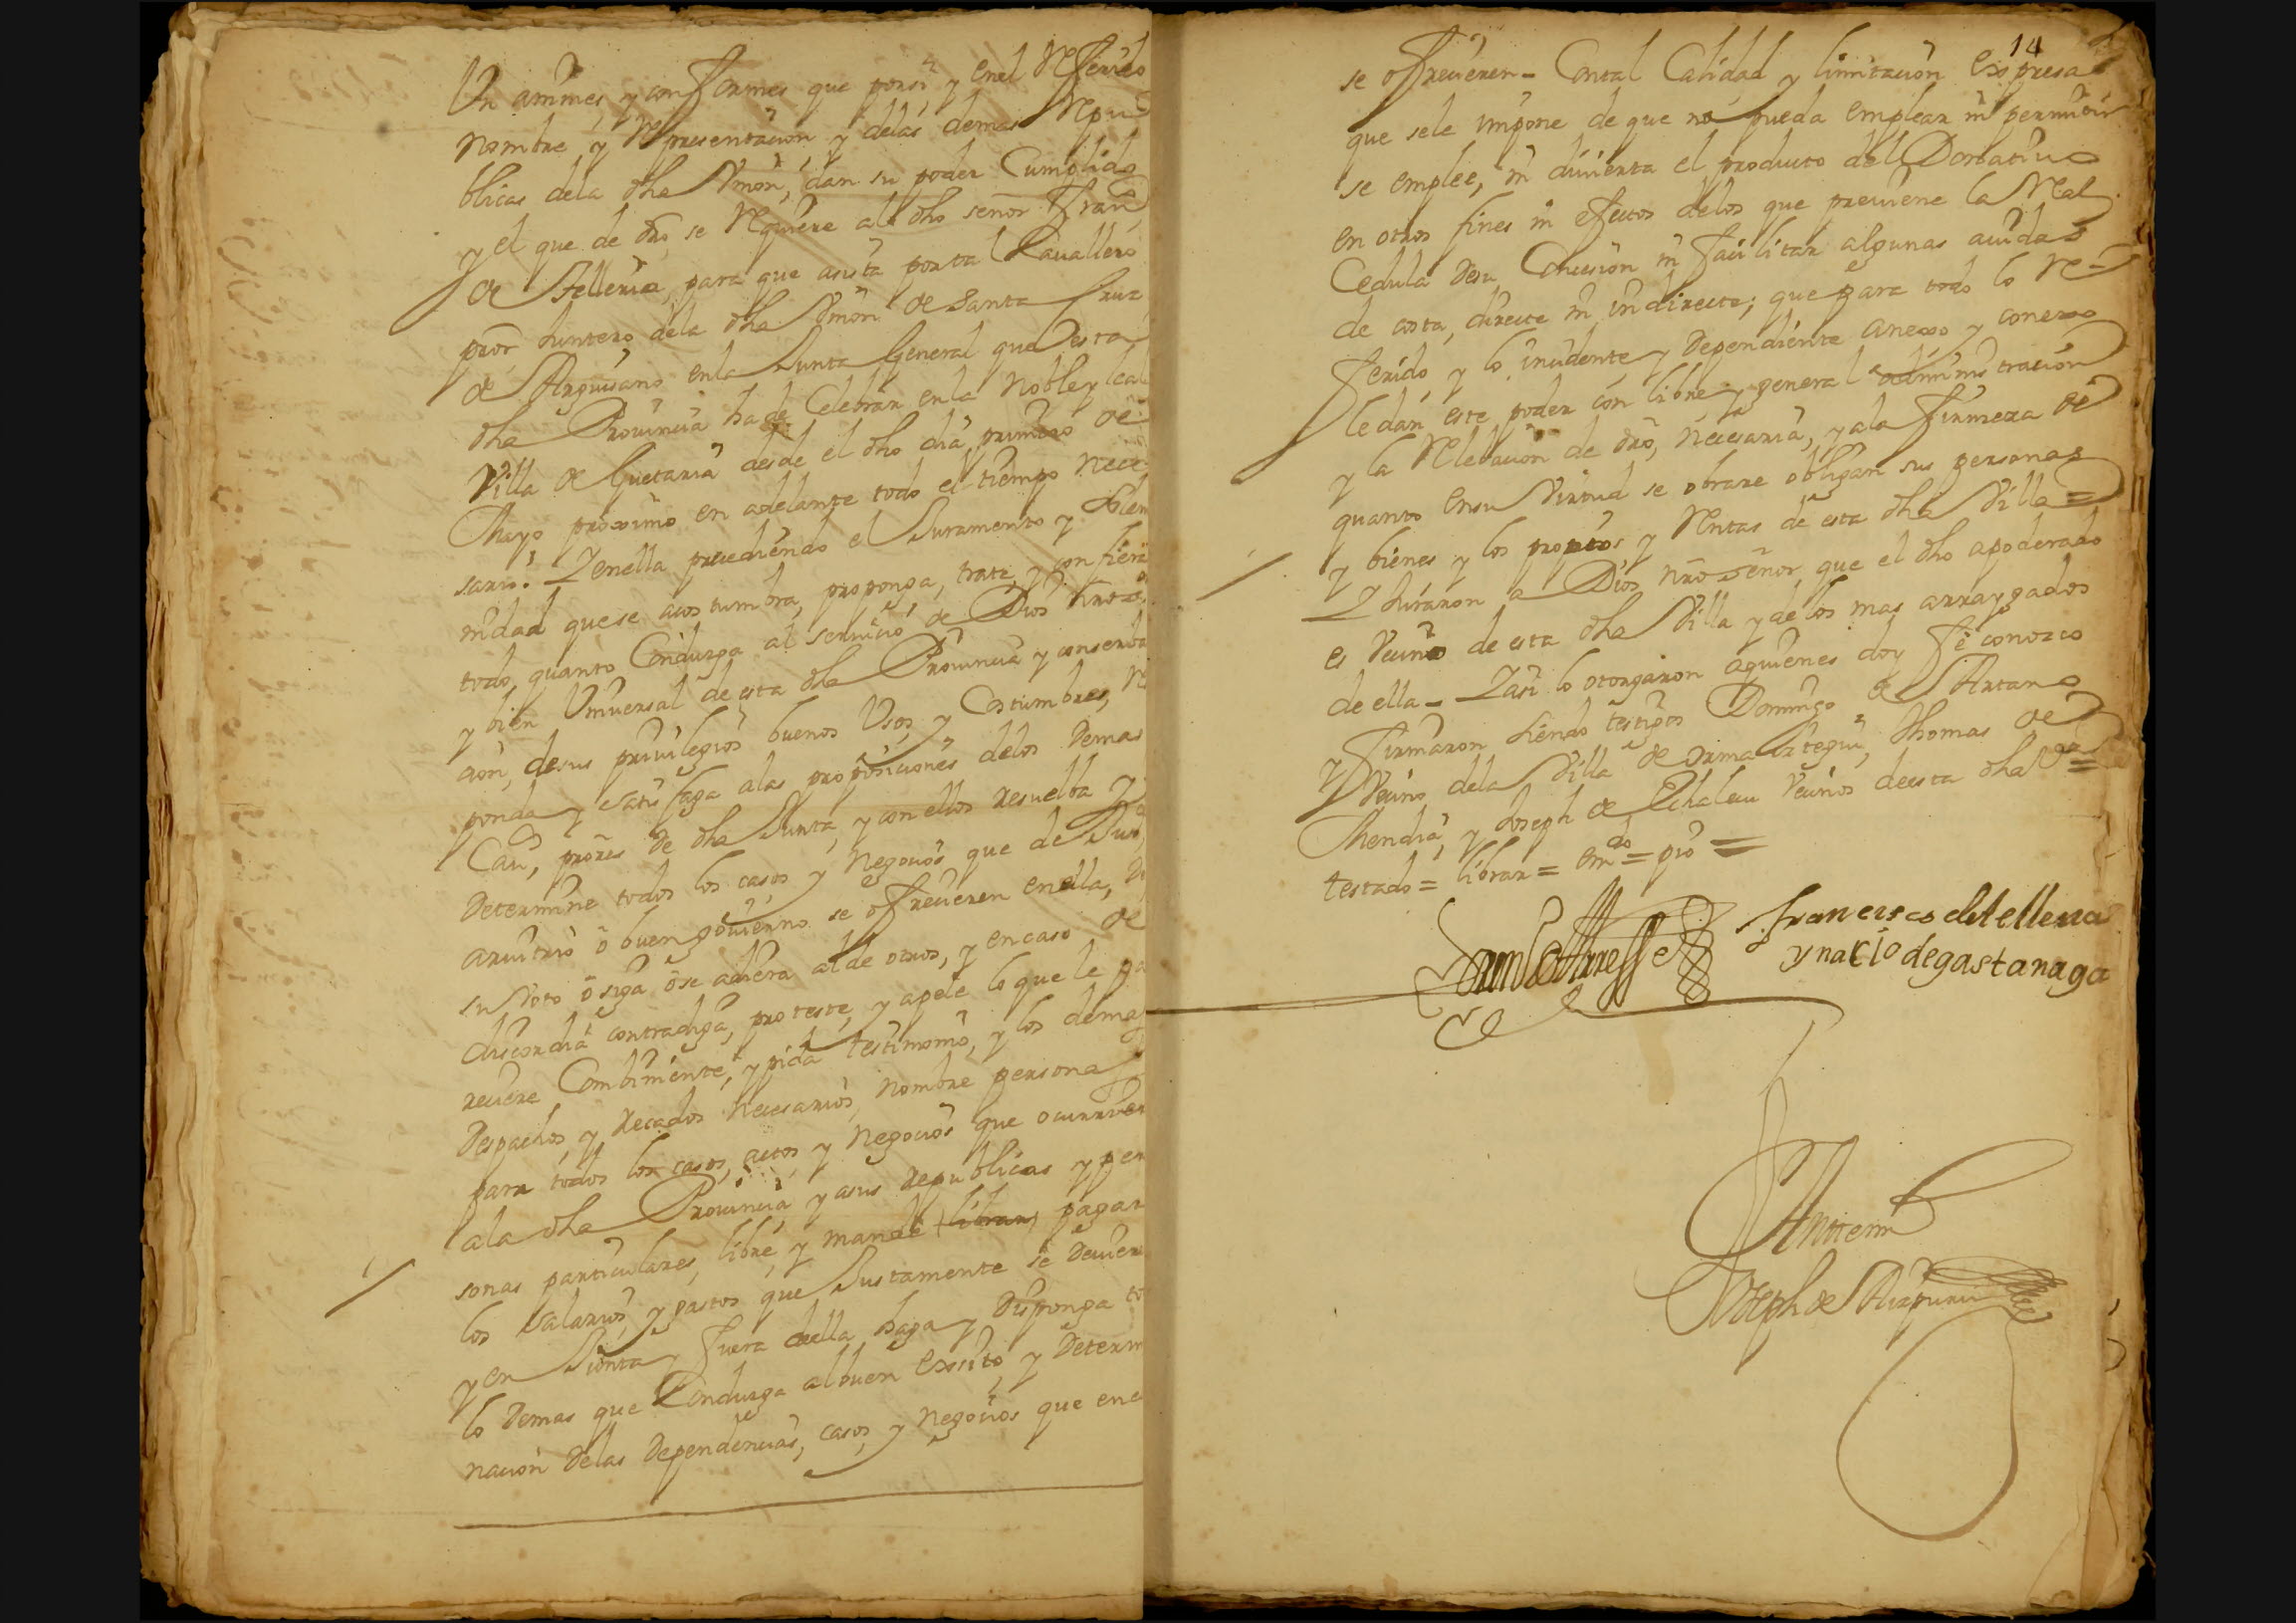 Un animes, y conformes que por si, y en el Referido
nombre, y Representacion, y delas demas Repu
blicas dela dha Vnion, dan su poder Cumplido
y el que de dro se Requiere al dho señor Fran
de Telleria, para que asista por tal Cauallero
pror Juntero dela dha Vnion de Santa Cruz
de Arguisano en la Junta General que esta
dha Prouincia ha de Celebrar en la Noble y leal
Villa de Guetaria desde el dho dia primero de
Mayo proximo en adelante todo el tiempo nece
sario. Y en ella precediendo el Juramento y solem
nidad que se acostumbra, proponga, trate, y confiera
todo quanto Conduzga al seruicio de Dios nro s.
y bien Vniuersal de esta dha Prouincia y conserba
cion, de sus priuilegios buenos Usos, y Costumbres, Res
ponda y satisfaga alas proposiciones delos Demas
Cau, prores de dha Junta, y con ellos resuelba y
Determine todos los casos y negocios que de Justi,
aruitrio o buen gouierno se ofrecieren en ella, de
su Voto o siga o se adiera al de otros, y en caso de
discordia contradiga, proteste, y apele lo que le pa
reciere Combiniente, y pida testimonio, y los demas
Despachos, y Recados necesarios, nombre persona
para todos los casos, actos, y negocios que ocurrier
ala dha Prouincia, y asus Republicas y per
sonas particulares, libre, y mande (librar) pagar
los salarios, y gastos que Justamente se deuier
y en Junta y fuera della haga y Disponga to
lo Demas que Conduzga al buen Exsito, y Determ
nacion Delas Dependencias, casos, y negocios que en e
14
se ofrecieren - Con tal Calidad y limitacion Expresa
que sele impone de que no pueda emplear ni permitir
se emplee, ni dinierta el producto del Donatiuo
en otros fines ni efectos delos que preuiene la Real
Cedula de su Concesion ni facilitar algunas auidas
de costa, directe ni indirecte; que para todo lo Re=
ferido, y lo incidente, y Dependiente anexo y conexo
le dan este poder con libre, y general administracion
y la Releuacion de dro, necesaria, y ala firmeza de
quanto en su Virtud se obrare obligan sus personas
y bienes y los propios y Rentas de esta dha Villa =
Y Juraron a Dios nro señor, que el dho apoderado
es Vecino de esta dha Villa y delos mas arraygados
de ella - Y asi lo otorgaron aquienes doy fe conozco
y firmaron siendo testigos Domingo de Artano
Vecino dela Villa de Ormaiztegui, Thomas de
Mendia, y Joseph de Echalecu Vecinos de esta dha Va =
testado = librar = emdo = pio =
Francisco detelleria
ynacio degastanaga
Antemi
Joseph de Aizpuru